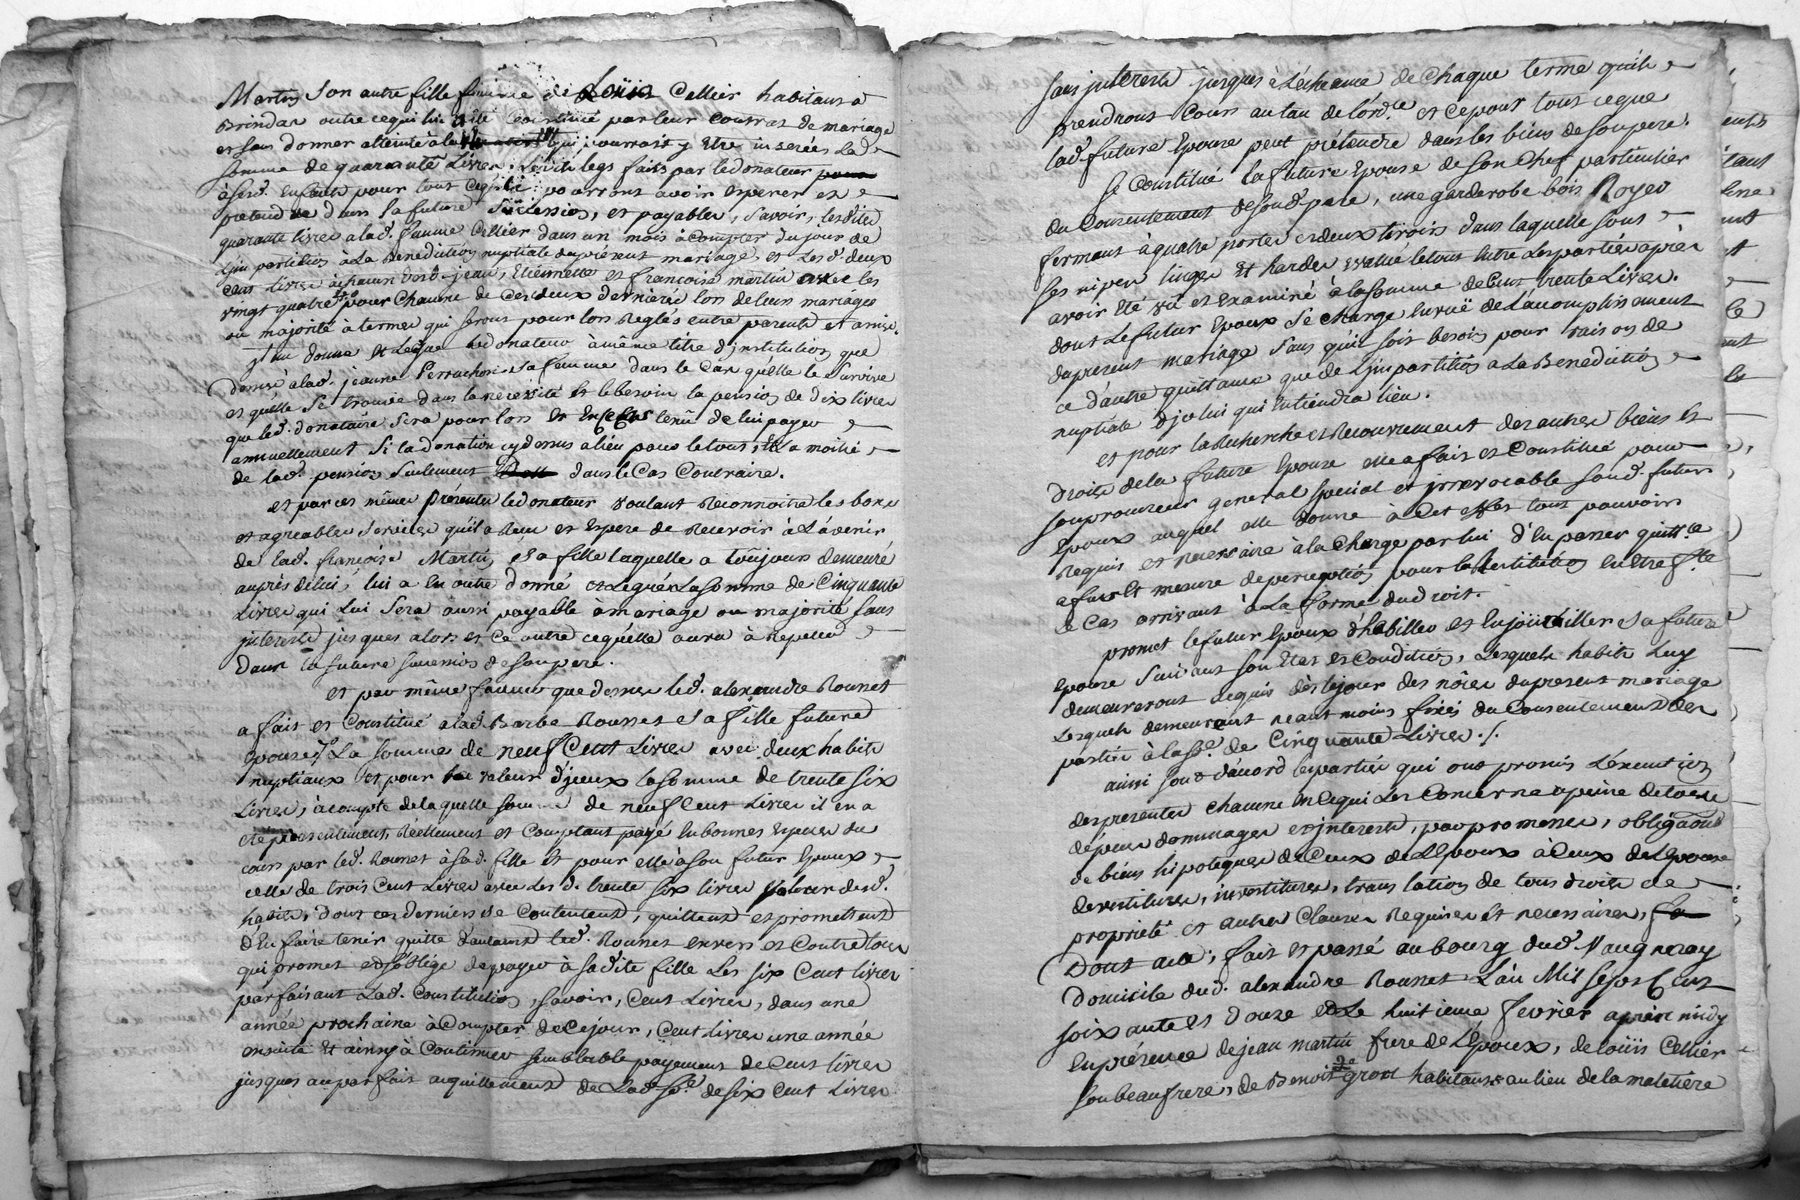 Martin son autre fille femme de Loüis Cellier habitant a
Brindas outre cequi lui a été Constitué par leur Contrat de mariage
et sans donner atteinte à la qui pourroit y Etre inserées la
somme de quarante Livres, Lesdits legs faits par ledonateur
à sesd. Enfants pour tout ce pourront avoir Esperer et
pretendre dans sa future Succession, et payables, savoir, lesdites
quarante livres alad. femme Cellier dans un mois àCompter dujour de
Linpartition à La Benediction nuptiale duprésent mariage, et Lesd. deux
Cent livres àchacun desd. jean, Etiennette et françoise martin avec les
vingt quatre pour Chacune de Ces deux dernieres lors deleurs mariages
ou majorité à termes qui seront pour lors Reglés entre parents et amis.
donne et Legue ledonateur àmême titre d'institution que
dessus alad. jeanne Perrachon sa femme dans le Cas quelle le Survive
et quelle Se trouve dans la nécéssité et lebesoin la pension de dix livres
que led. donataire sera pour lors Et tenu de lui payer
annuellement Si ladonation cydessus alieu pour letout, Et la moitié
de lad. pension seulement dans le Cas Contraire.
et par ces mêmes présentes ledonateur voulant Reconnoitre les bons
et agréables services qu'il a Reçu et Espere de Recevoir à L'avenir
de lad. françoise Martin sa fille laquelle a toûjours demeuré
auprès delui, lui a En outre donné et Legué La somme de Cinquante
Livres qui Lui Sera aussi payable àmariage ou majorité sans
jnterests jusques alors et Ce outre cequelle aura à Repeter
Dans la future succession desonpere.
et par même faveur que dessus led. alexandre Rousset
a fait et Constitué alad. Barbe Rousset sa fille future
Epouse La somme de neuf Cent Livres avec deux habits
nuptiaux et pour la valeur d'jceux la somme de trente six
Livres, àcompte de laquelle somme de neuf Cent Livres il en a
été présentement, Réellement et Comptant payé Enbonnes Especes du
cours par led. Rousset àsad. fille Et pour elle àson futur Epoux
celle de trois Cent Livres avec Les d. trente six livres valeur desd.
habits, dont ces derniers se Contentent, quittent et promettent
d'En faire tenir quitte d'autant led. Rousset envers et Contre tous
qui promet et s'oblige depayer à sadite fille Les six Cent livres
parfaisant Lad. Constitution, savoir, Cent Livres, dans une
année prochaine àCompter deCejour, Cent Livres une année
ensuite Et ainsy à Continuer semblable payement de Cent livres
jusques auparfait acquittement de Lad. Se. de six Cent Livres
sans jnterests jusques aLécheance de Chaque terme qu'ils
prendront Cours au tau de l'ord.ce et Cepour tout ceque
lad. future Epouse peut prétendre dans les biens desonpere.
Se Constitue la future Epouse de son Chef particulier
du Consentement desond. pere, une garderobe bois Noyer
fermant àquatre portes etdeux tiroirs dans laquelle sont
ses nipes linges Et hardes Evallué letout Entre Lesparties après
avoir Eté vû et Examiné àlasomme deCent trente Livres.
dont Le futur Epoux Se charge Envuë deLaccomplissement
duprésent mariage sans qu'il soit besoin pour raison de
ce d'autre quittance que de L'jnpartition a La Benediction
nuptiale d'jcelui qui Entiendra lieu.
et pour la Recherche et Recouvrement des autres biens Et
droits dela future Epouse elle a fait et Constitué pour
sonprocureur general special et jrrevocable sond. futur
Epoux auquel elle donne à Cet effet tout pouvoir
Requis et necessaire à la Charge par lui d'En passer quitt.ce
afur et mesure deperception pour la Restitution En Etre f.te
le Cas arrivant à La forme du droit.
promet lefutur Epoux d'habiller et Enjoüailler sa future
Epouse Suivant son Etat et Condition, Lesquels habits Luy
demeureront acquis dès lejour des nôces duprésent mariage
Lesquels demeurent neant moins fixés du Consentement des
parties à la Se. de Cinquante Livres. /.
ainsi sont d'acord lesparties qui ont promis L'éxecution
desprésentes chacune en Cequi Les Concerne apeine detous
dépens dommages etjnterests, par promesses, obligations
de biens hipoteques deCeux deLEpoux àCeux deLepouse
devestitures, investitures, translation de tous droits de
propriété et autres Clauses Requises Et necessaires,
Dont acte, fait et passé au bourg dud. Vaugneray
domicile dud. alexandre Rousset L'an Mil sept Cent
soixante et douze et Le huitieme fevrier après midy
Enprésence dejean martin frere deL'Epoux, deloüis Cellier
sonbeaufrere, de Benoit gros habitants aulieu de la maletière